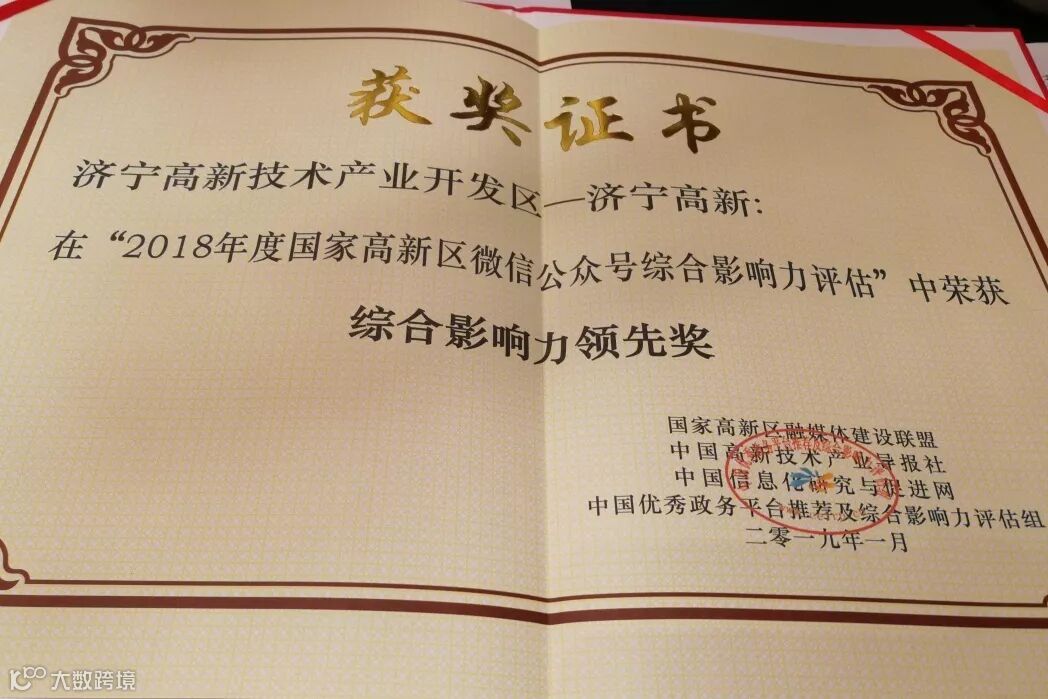 获奖证书
济宁高新技术产业开发区—济宁高新:
在“2018年度国家高新区微信公众号综合影响力评估”中荣获
综合影响力领先奖
国家高新区融媒体建设联盟
中国高新技术产业导报社
中国信息化研究与促进网
中国优秀政务平台推荐及综合影响力评估组
二零一九年一月
大数跨境